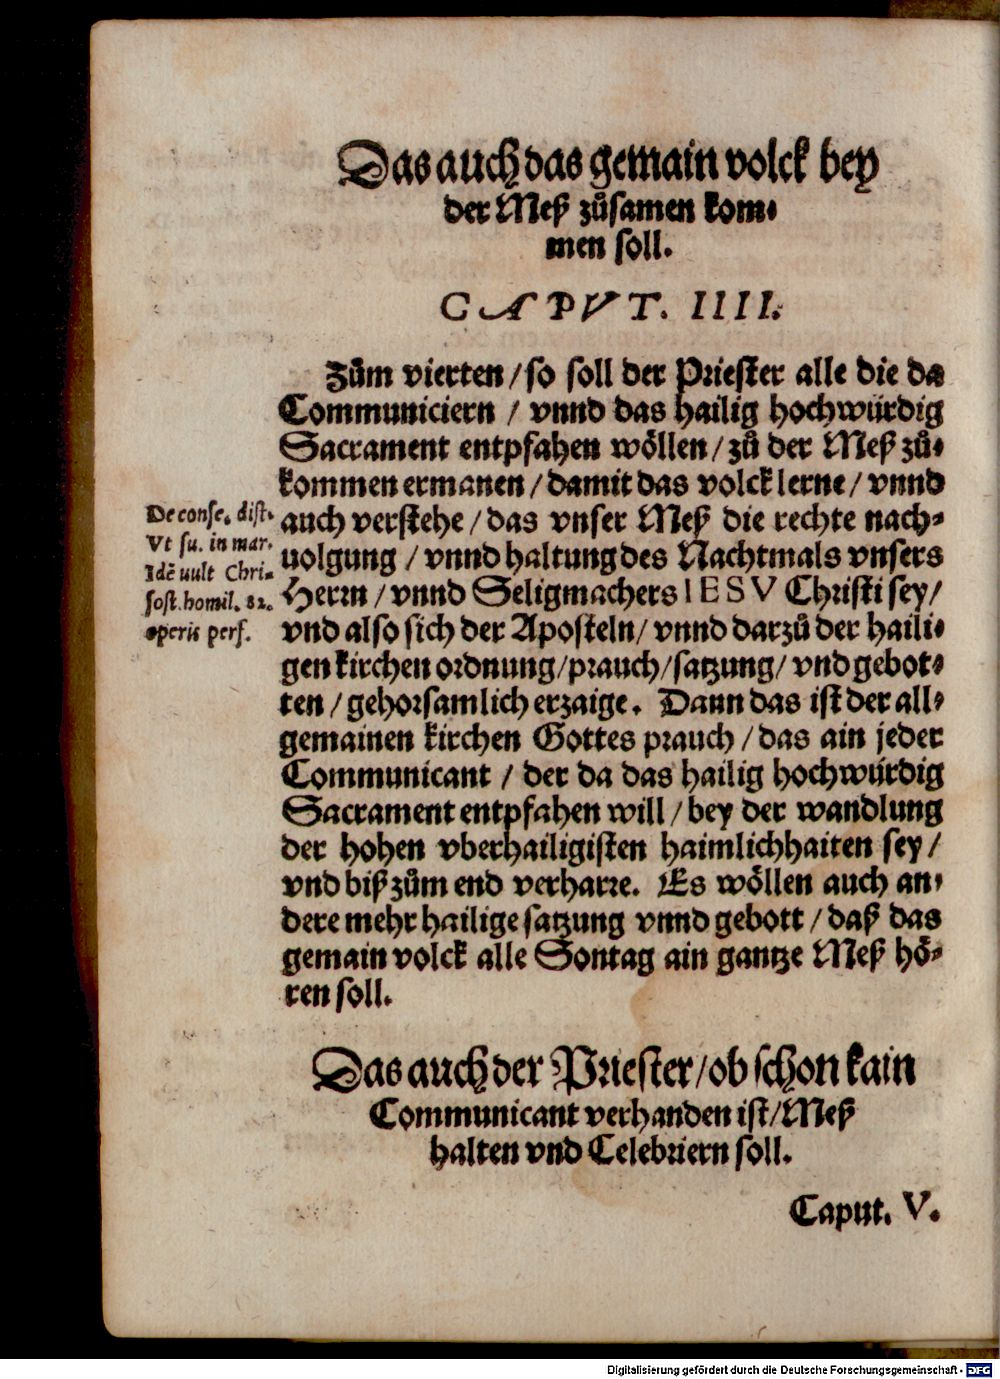 Das auch das gemain volck bey
der Meß zůsamen kom⸗
men soll.
CAPVT. IIII.
Zům vierten / so soll der Priester alle die da
Communiciern / vnnd das hailig hochwürdig
Sacrament entpfahen wöllen / zů der Meß zů⸗
kommen ermanen / damit das volck lerne / vnnd
auch verstehe / das vnser Meß die rechte nach⸗
uolgung / vnnd haltung des Nachtmals vnsers
Herrn / vnnd Seligmachers IESV Christi sey /
vnd also sich der Aposteln / vnnd darzů der haili⸗
gen kirchen ordnung / prauch / satzung / vnd gebot⸗
ten / gehorsamlich erzaige. Dann das ist der all⸗
gemainen kirchen Gottes prauch / das ain jeder
Communicant / der da das hailig hochwürdig
Sacrament entpfahen will / bey der wandlung
der hohen vberhailigisten haimlichhaiten sey /
vnd biß zům end verharre. Es wöllen auch an⸗
dere mehr hailige satzung vnnd gebott / daß das
gemain volck alle Sontag ain gantze Meß hö⸗
ren soll.
De conse. dist.
Vt su. in mar.
Idē uult Chri⸗
sost. homil. 82.
operis perf.
Das auch der Priester / ob schon kain
Communicant verhanden ist / Meß
halten vnd Celebriern soll.
Caput. V.
Digitalisierung gefördert durch die Deutsche Forschungsgemeinschaft - DFG